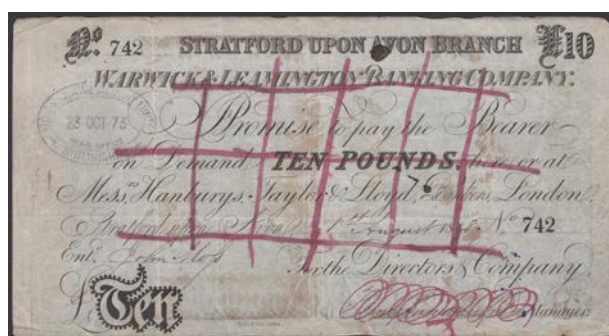 No. 742 STRATFORD UPON AVON BRANCH £10
WARWICK & LEAMINGTON BANKING COMPANY.
23 OCT 73
I Promise to pay the Bearer
on Demand TEN POUNDS, here or at
Messrs. Hanburys, Taylor & Lloyd, Bankers, London.
Stratford upon Avon 1st August No 742
Entd. John
For the Directors & Company
£ Ten Manager